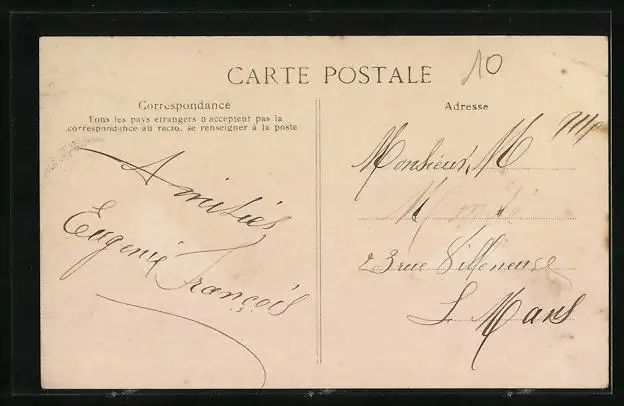 CARTE POSTALE
10
Correspondance
Tous les pays étrangers n'acceptent pas la
correspondance au recto, se renseigner à la poste
Amitiés
Eugenie François
Adresse
Monsieur, M
23 rue Villeneuse
L Mans